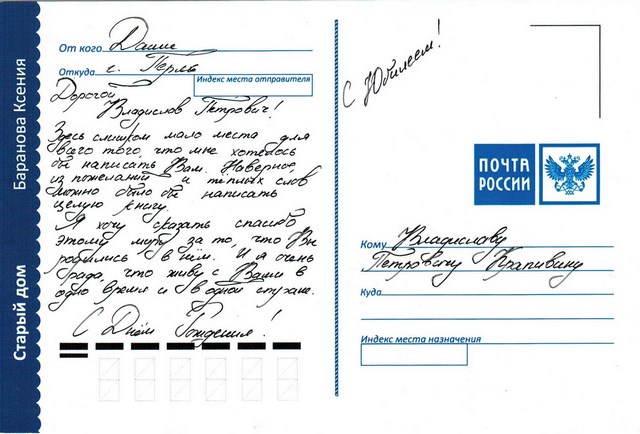 Баранова Ксения
Старый дом
От кого Даши
Откуда г. Пермь
Индекс места отправителя
Дорогой
Владислав Петрович!
Здесь слишком мало места для
всего того, что мне хотелось
бы написать Вам. Наверное,
из пожеланий и тёплых слов
можно было бы написать
целую книгу.
Я хочу сказать спасибо
этому миру за то, что Вы
родились в нём. И я очень
рада, что живу с Вами в
одно время и в одной стране.
С Днём Рождения!
С Юбилеем!
ПОЧТА
РОССИИ
Кому Владиславу
Петровичу Крапивину
Куда
Индекс места назначения